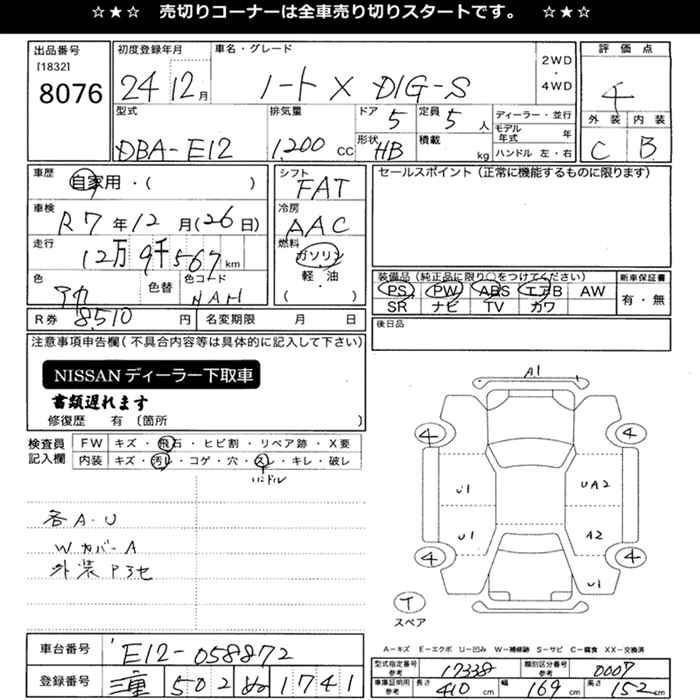 ☆★☆ 売切りコーナーは全車売り切りスタートです。 ☆★☆
出品番号
[1832]
8076
初度登録年月
24 12月
車名・グレード
ノート X DIG-S
2WD
・
4WD
評価点
外装 内装
C B
型式
DBA-E12
排気量
1,200 CC
ドア 5
形状 HB
定員 5 人
積載 kg
ディーラー・並行
モデル年式 年
ハンドル 左・右
車歴
自家用・( )
車検
R7年12月(26日)
走行
12万9千567km
色
色替
色コード
NAH
シフト
FAT
冷房
AAC
燃料
ガソリン
軽・油
( )
セールスポイント(正常に機能するものに限ります)
装備品(純正品に限り○をつけてください)
PS PW ABS エアB AW
SR ナビ TV カワ
新車保証書
有・無
R券 8,510 円
名変期限 月 日
後日品
注意事項申告欄(不具合内容等は具体的に記入して下さい)
NISSANディーラー下取車
書類遅れます
修復歴 有 〔箇所 〕
検査員
記入欄
FW キズ・飛石・ヒビ割・リペア跡・X要
内装 キズ・汚レ・コゲ・穴・スレ・キレ・破レ
ハンドル
各A・U
Wカバー A
外装 P3セ
A1
4 4
U1 UA2
U1 A2
4 4
U1
T
スペア
A−キズ E−エクボ U−凹み W−補修跡 S−サビ C−腐食 XX−交換済
車台番号 E12-058872
登録番号 三重 502 ぬ 1741
型式指定番号
参考
17338
類別区分番号
参考
0007
車庫証明用
参考
長さ 410 cm
幅 169 cm
高さ 152 cm